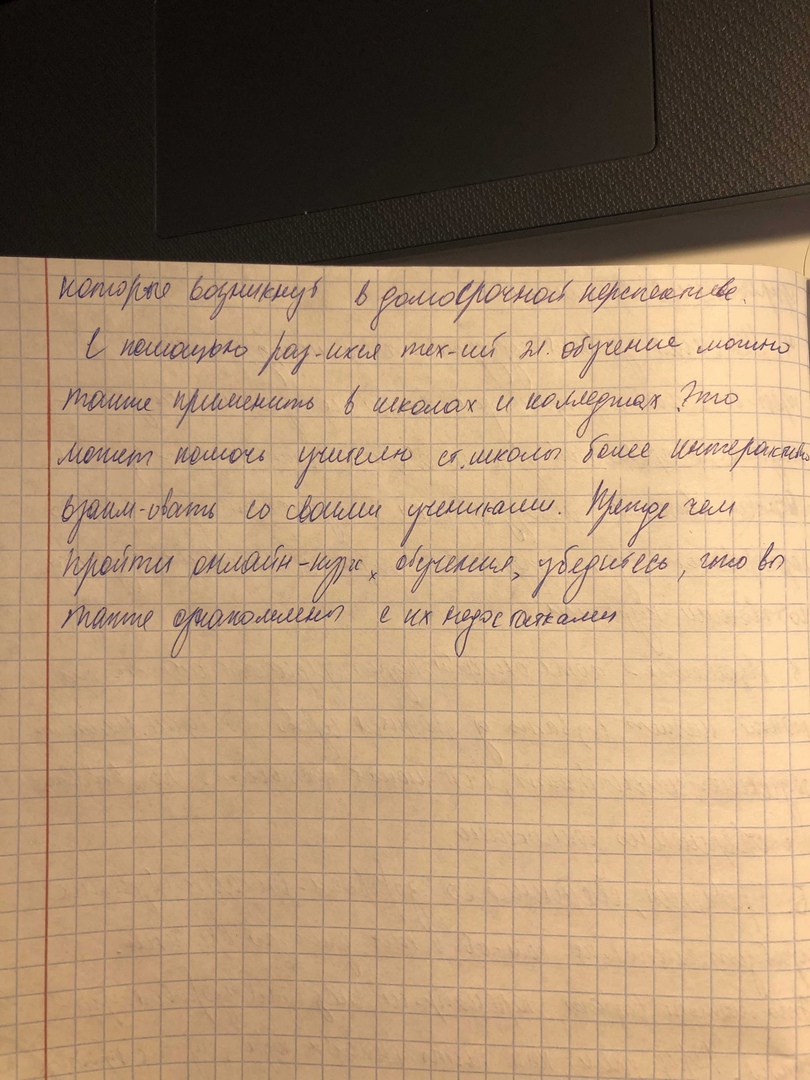 которые возникнут в домосрочной перспективе.
С помощью раз-ихся тех-ий эл. обучение можно
также применить в школах и колледжах. Это
может помочь учителю ст. школы более интерактивно
взаим-овать со своими учениками. Прежде чем
пройти онлайн-курс, обучения, убедитесь, что вы
также ознакомлены с их недостатками